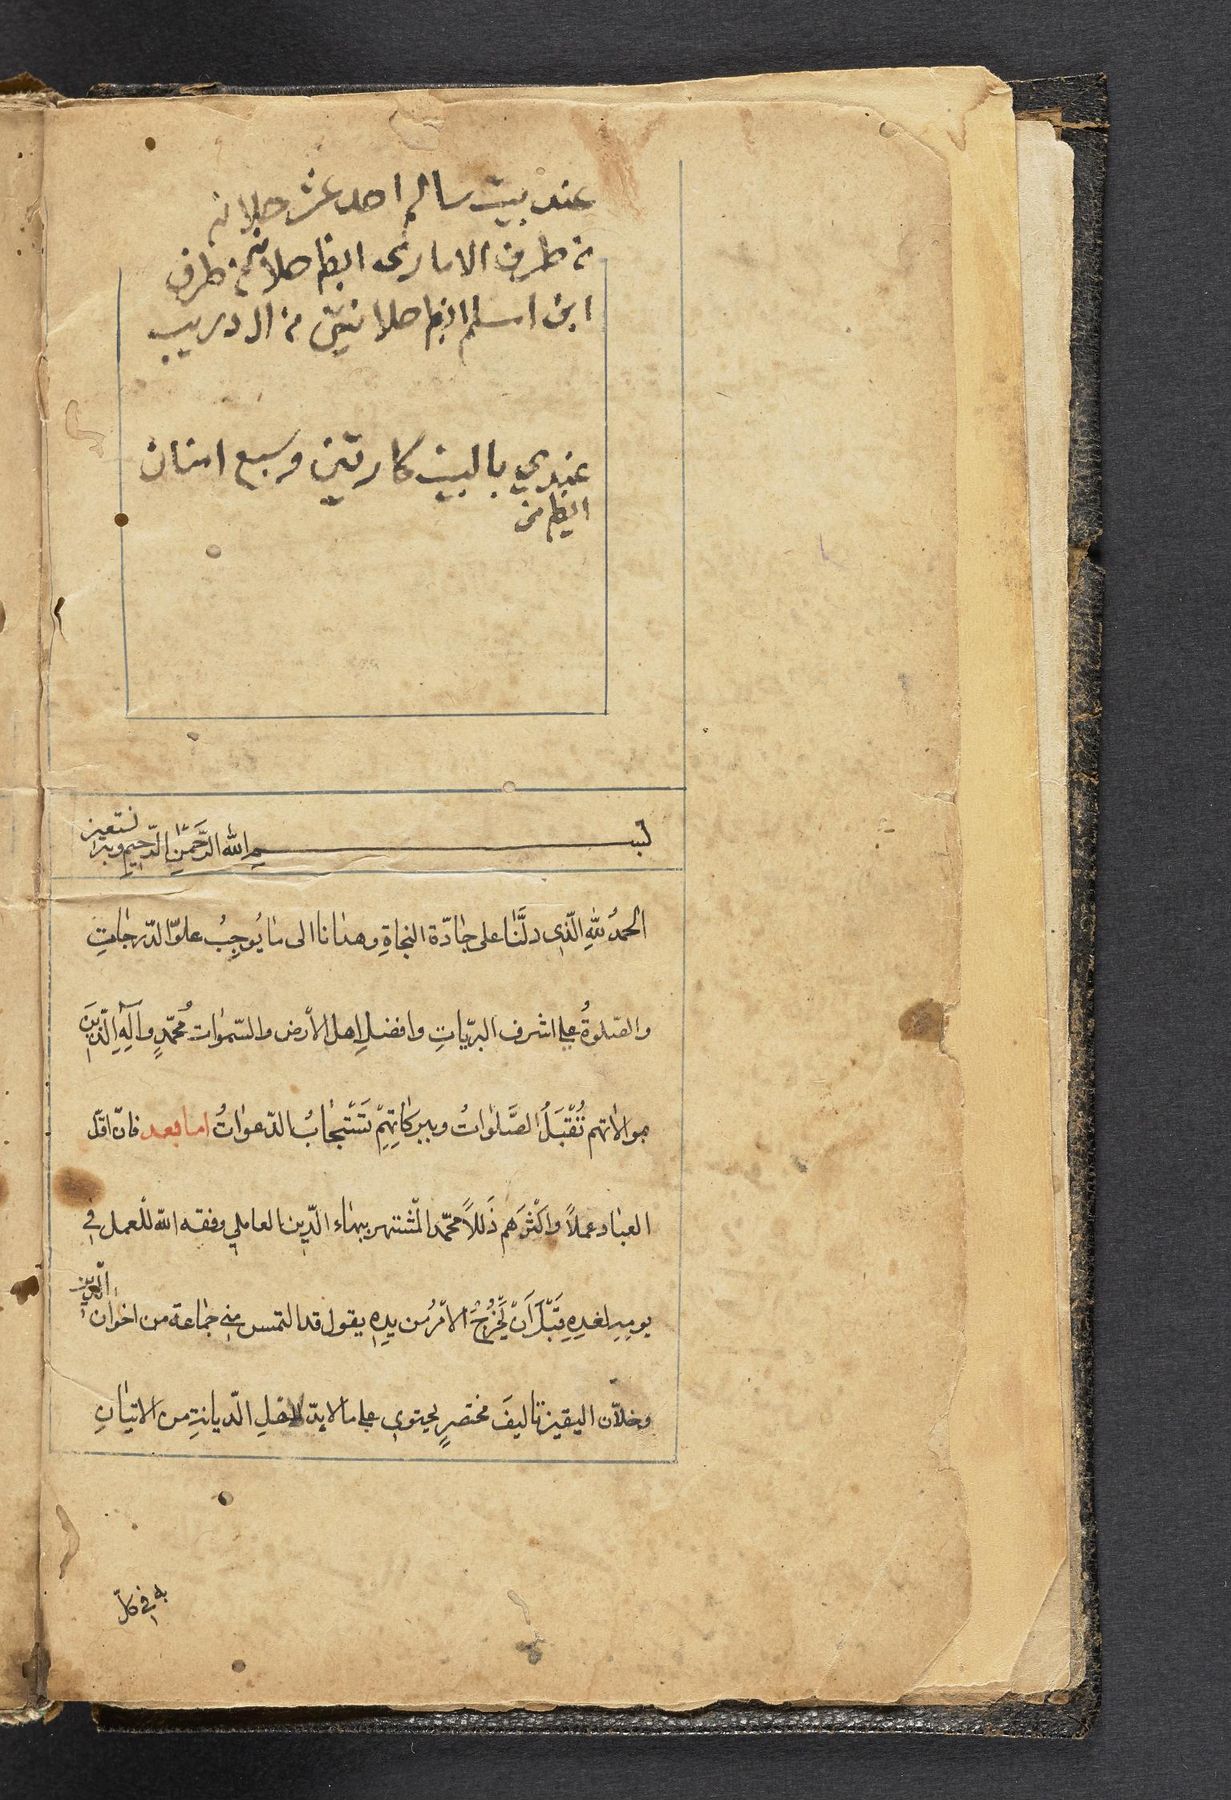 عند بيت سالم احد عشر حلانه
من طرف الامارى ايظا حلانه من طرف
ابن اسلم ايظا حلانتين من ال دريب
عندي بالبيت كارتين وسبع امنان
ايظا من
بسم الله الرَّحمٰنِ الرّحيمِ وبه نستعين
الحمدُ للهِ الّذى دلَّنٰا على جٰادّة النجاةِ وهدٰانا الى مٰا يُوجِبُ علوّ الدّرجٰاتِ
والصّلوةُ على اشرف البريّاتِ وافضلِ اهل الأرض والسّمٰوات مُحمّدٍ وآلِهِ الّذين
بموالاتهم تُقْبَلُ الصَّلَوٰاتُ وببركاتِهِمْ تَسْتجٰابُ الدّعوٰاتُ اما بعد فانّ اقلّ
العبٰاد عملاً واكْثرَهم ذَللاً محمّد المشْتهر ببهٰاء الدّين العاملي وفقه اللّه للْعمل في
يومِهِ لغدِهِ قَبْلَ اَنْ يَخْرُجَ الامْرُ من يدِهِ يقول قد التمس منّي جمٰاعة من اخوٰان الدّين
وخلّان اليقين تاليفَ مختصرٍ يحتوى على مالابدّ لاهلِ الدّيانةِ من الاتيٰانِ
به في كلّ